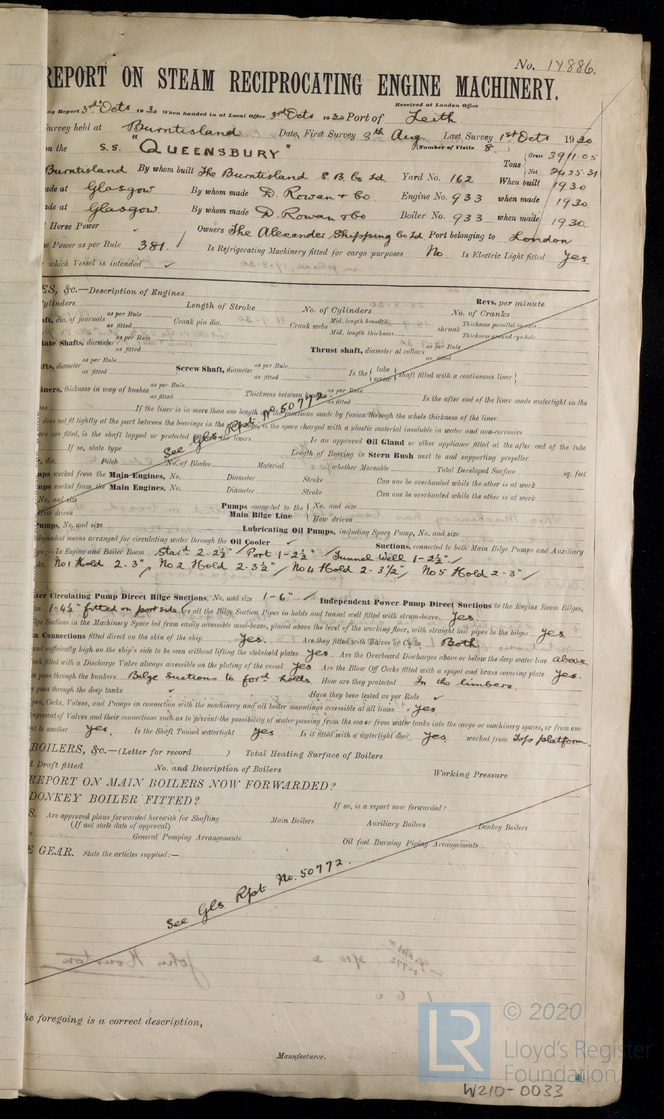 No. 17886.
REPORT ON STEAM RECIPROCATING ENGINE MACHINERY.
Received at London Office
Report 3rd Octr 1930 When handed in at Local Office 3rd Octr 1930 Port of Leith
Survey held at Burntisland Date, First Survey 8th Aug. Last Survey 1st Octr 1930
on the S.S. "QUEENSBURY" Number of Visits 8
Tons Gross 3911.05
Net 2435.31
Burntisland By whom built The Burntisland S. B. Co Ld Yard No. 162 When built 1930
made at Glasgow By whom made D. Rowan & Co Engine No. 933 when made 1930
made at Glasgow By whom made D. Rowan & Co Boiler No. 933 when made 1930
Horse Power Owners The Alexander Shipping Co Ld Port belonging to London
Power as per Rule 381 Is Refrigerating Machinery fitted for cargo purposes No Is Electric Light fitted Yes
which Vessel is intended
ES, &c.—Description of Engines Revs. per minute
Cylinders Length of Stroke No. of Cylinders No. of Cranks
dia. of journals as per Rule as fitted Crank pin dia. Crank webs Mid. length breadth Mid. length thickness shrunk Thickness parallel to axis Thickness around eyehole
Shafts, diameter as per Rule as fitted Thrust shaft, diameter at collars as per Rule as fitted
diameter as per Rule as fitted Screw Shaft, diameter as per Rule as fitted Is the tube screw shaft fitted with a continuous liner
thickness in way of bushes as per Rule as fitted Thickness between as per Rule as fitted Is the after end of the liner made watertight in the
If the liner is in more than one length made by fusion through the whole thickness of the liner
does not fit tightly at the part between the bearings in the is the space charged with a plastic material insoluble in water and non-corrosive
are fitted, is the shaft lapped or protected liners Is an approved Oil Gland or other appliance fitted at the after end of the tube
See Gls. Rpt. No. 50772.
If so, state type Length of Bearing in Stern Bush next to and supporting propeller
dia. Pitch No. of Blades Material whether Moveable Total Developed Surface sq. feet
worked from the Main Engines, No. Diameter Stroke Can one be overhauled while the other is at work
worked from the Main Engines, No. Diameter Stroke Can one be overhauled while the other is at work
No. and size Pumps connected to the Main Bilge Line No. and size
How driven How driven
Pumps, No. and size Lubricating Oil Pumps, including Spare Pump, No. and size
independent means arranged for circulating water through the Oil Cooler Suctions, connected to both Main Bilge Pumps and Auxiliary
In Engine and Boiler Room Starbd 2-2½" Port 1-2½" Tunnel Well 1-2½"
No 1 Hold 2-3", No 2 Hold 2-3½" No 4 Hold 2-3½" No 5 Hold 2-3"
Water Circulating Pump Direct Bilge Suctions, No. and size 1-6" Independent Power Pump Direct Suctions to the Engine Room Bilges,
1-4½" fitted on port side Are all the Bilge Suction Pipes in holds and tunnel well fitted with strum-boxes Yes.
Bilge Suctions in the Machinery Space led from easily accessible mud-boxes, placed above the level of the working floor, with straight tail pipes to the bilges Yes.
Connections fitted direct on the skin of the ship Yes. Are they fitted with Valves or Cocks Both
sufficiently high on the ship's side to be seen without lifting the stokehold plates Yes. Are the Overboard Discharges above or below the deep water line above
fitted with a Discharge Valve always accessible on the plating of the vessel Yes Are the Blow Off Cocks fitted with a spigot and brass covering plate Yes.
pass through the bunkers Bilge Suctions to ford holds How are they protected In the limbers.
pass through the deep tanks Have they been tested as per Rule
Pipes, Cocks, Valves, and Pumps in connection with the machinery and all boiler mountings accessible at all times Yes
arrangement of Valves and their connections such as to prevent the possibility of water passing from the sea or from water tanks into the cargo or machinery spaces, or from one
to another Yes. Is the Shaft Tunnel watertight Yes Is it fitted with a watertight door Yes worked from Top platform
BOILERS, &c.—(Letter for record ) Total Heating Surface of Boilers
Draft fitted No. and Description of Boilers Working Pressure
REPORT ON MAIN BOILERS NOW FORWARDED?
DONKEY BOILER FITTED? If so, is a report now forwarded?
Are approved plans forwarded herewith for Shafting Main Boilers Auxiliary Boilers Donkey Boilers
(If not state date of approval)
General Pumping Arrangements Oil fuel Burning Piping Arrangements
GEAR. State the articles supplied:—
See Gls Rpt No. 50772.
The foregoing is a correct description,
Manufacturer.
LR
© 2020
Lloyd's Register
Foundation
W210-0033